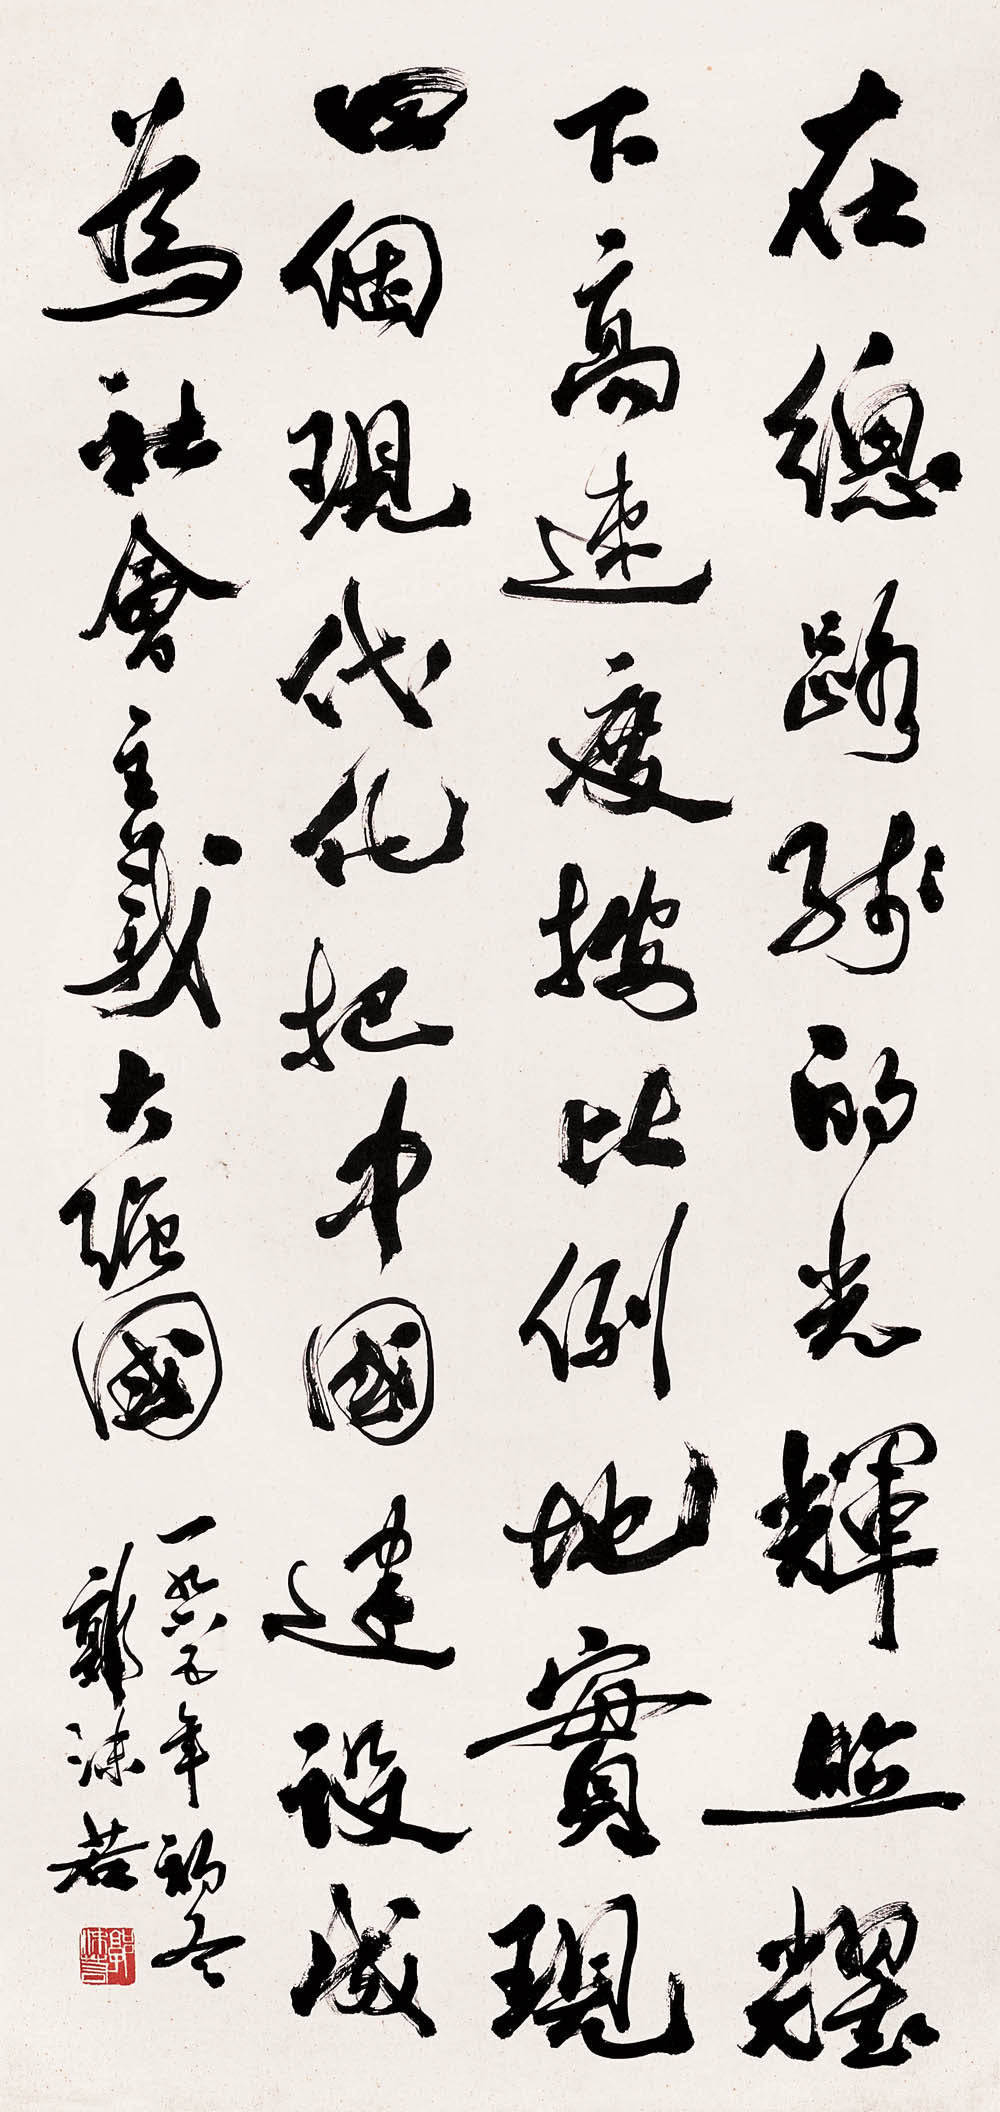 在總路綫的光輝照耀
下高速度按比例地實現
四個現代化把中國建設成
為社會主義大強國
一九六五年初冬
郭沫若
郭沫若